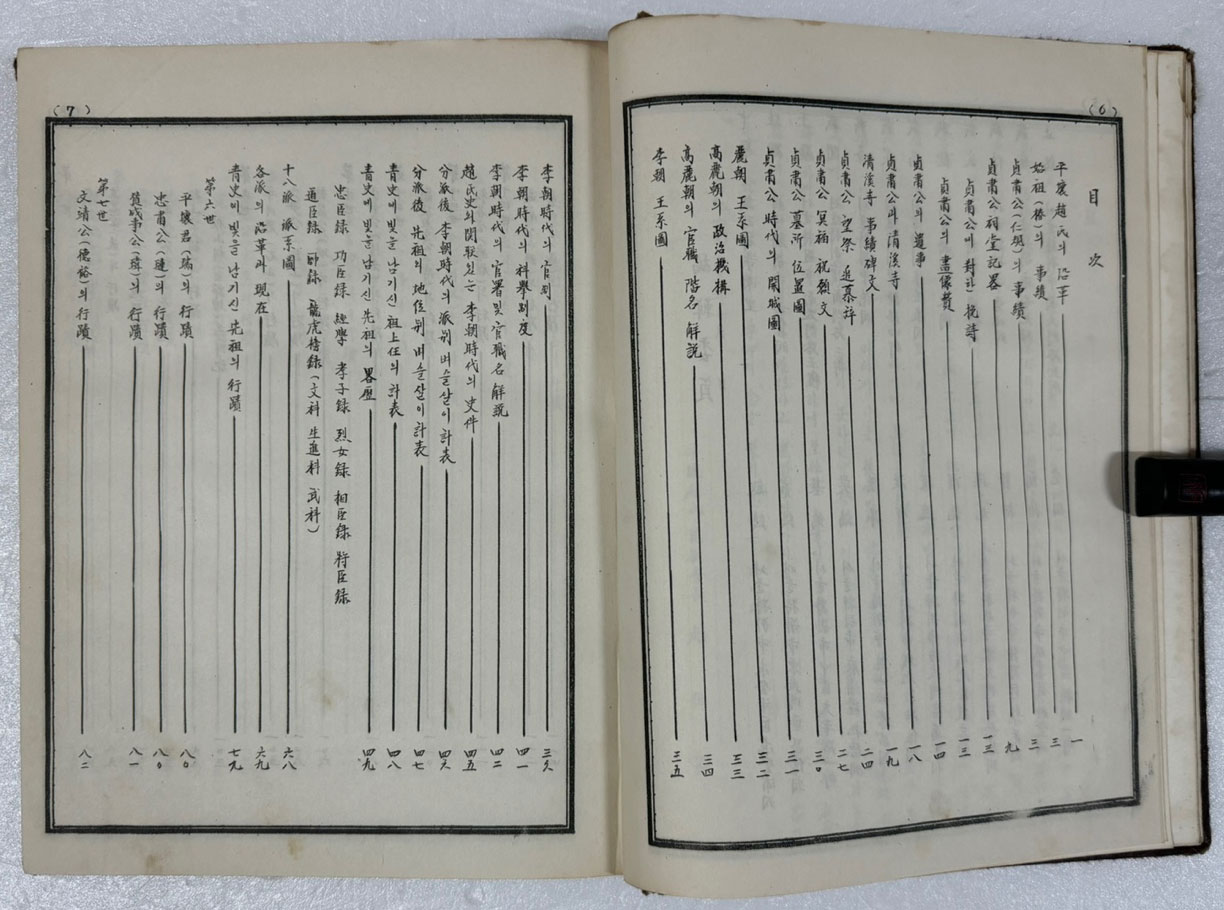 (6)
目次
平壤趙氏의 沿革 一
始祖(椿)의 事蹟 三
貞肅公(仁規)의 事績 三
貞肅公祠堂記畧 九
貞肅公에 對한 挽詩 一三
貞肅公의 畫像贊 一三
貞肅公의 遺事 一四
貞肅公과 淸溪寺 一八
淸溪寺 事績碑文 一九
貞肅公 望祭 追慕辞 二四
貞肅公 冥福 祝願文 二七
貞肅公 墓所 位置圖 三〇
貞肅公 時代의 開城圖 三一
麗朝 王系圖 三二
高麗朝의 政治機構 三三
高麗朝의 官職 階名 解説 三四
李朝 王系圖 三五
(7)
李朝時代의 官制 三九
李朝時代의 科擧制度 四一
李朝時代의 官署및 官職名 解説 四二
趙氏史의 関联있는 李朝時代의 史件 四五
分派後 李朝時代의 派別 벼슬살이 計表 四六
分派後 先祖의 地位別 벼슬살이 計表 四七
青史에 빛을 남기신 祖上任의 計表 四八
青史에 빛을 남기신 先祖의 畧歷 四九
忠臣録 功臣録 經學 孝子録 烈女録 相臣録 将臣録
道臣録 卧録 龍虎榜録(文科 生進科 武科)
十八派 派系圖 六八
各派의 沿革과 現在 六九
青史에 빛을 남기신 先祖의 行蹟 七九
第六世
平壤君(瑞)의 行蹟 八〇
忠肅公(璉)의 行蹟 八〇
贊成事公(瑋)의 行蹟 八一
第七世
文靖公(德裕)의 行蹟 八二